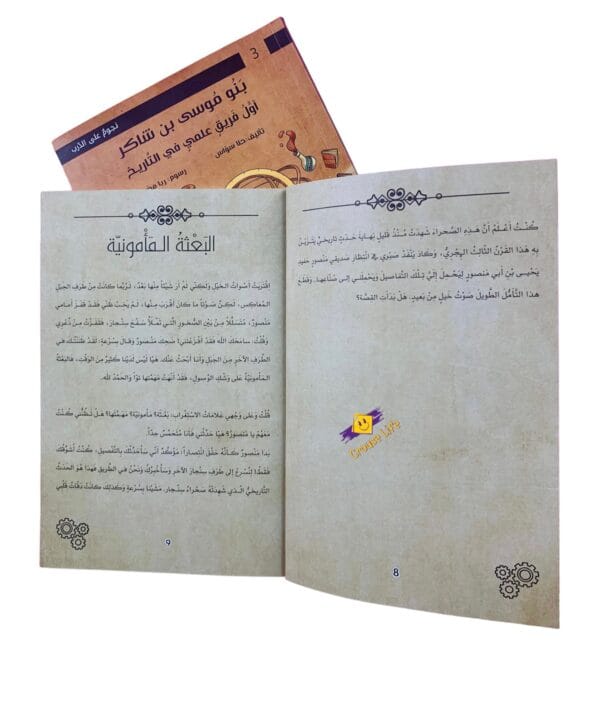 3
نجوم على الدرب
بَنُو مُوسى بن شاكر
أوّل فريقٍ علميّ في التّاريخ
تأليف: حلا سوّاس
رسوم: ربا
كُنْتُ أَعْلَمُ أنَّ هَذِهِ الصَّحراءَ شَهِدَتْ مُنْذُ قَليلٍ نِهايَةَ حَدَثٍ تاريخيٍّ يتزيّن
بِهِ هذا القَرْنُ الثّالِثُ الهِجْريُّ، وَكادَ يَنْفَدُ صَبْري في انْتِظارِ صَديقي مَنْصور حَفيدِ
يَحْيَى بْنِ أبي مَنصورٍ ليَحْمِلَ إليَّ تِلْكَ التَّفاصيلَ ويَحْمِلَني إلى صُنّاعِها. وَقَطَعَ
هذا التّأمُّلَ الطّويلَ صَوْتُ خَيلٍ مِنْ بَعيدٍ. هَلْ بَدَأَتِ القِصَّةُ؟
Creouse Life
8
البَعْثةُ المَأْمونيّة
اقترَبَتْ أصْواتُ الخَيْلِ ولَكِنّي لَمْ أرَ شَيْئاً مِنْها بَعْدُ، لَرُبَّما كانَتْ مِنْ طَرَفِ الجَبَلِ
المُعاكِسِ، لَكِنَّ صَوْتاً ما كانَ أَقْرَبَ مِنْها، لَمْ يَخِبْ ظَنّي فَقَدْ قَفَزَ أمامي
مَنْصورُ، مُتَسَلِّلاً مِنْ بَيْنِ الصُّخورِ الَّتي تَمْلأُ سَفْحَ سِنْجار، فَقَفَزْتُ مِنْ ذُعْري
وَقُلْتُ: سامَحَكَ الله فَقَدْ أفْزَعْتَني! ضَحِكَ مَنْصورُ وَقالَ بِسُرْعَةٍ: لَقَدْ ظَنَنْتُكَ في
الطَّرَفِ الآخَرِ مِنَ الجَبَلِ وَأنا أبْحَثُ عَنْكَ. هَيّا لَيْسَ لَدَيْنا كَثيرٌ مِنَ الوَقْتِ، فَالبَعْثَةُ
المَأمونيَّةُ عَلى وَشَكِ الوُصولِ، فَقَدْ أنْهَتْ مَهَمَّتَها تَوّاً والحَمْدُ لله.
قُلْتُ وَعَلى وَجْهي عَلاماتُ الاسْتِغْرابِ: بَعْثَة؟ مَأمونيّة؟ مَهَمَّتُها؟ هَلْ تَظُنُّني كُنْتُ
مَعَهُمْ يا مَنْصورُ؟ هَيّا حَدِّثْني فَأنا مُتَحَمِّسٌ جِدّاً.
بَدا مَنْصورُ كَأنَّهُ حَقَّقَ انْتِصاراً: مُؤكَّدٌ أنّي سأُحَدِّثُكَ بِالتَّفْصيلِ، كُنْتُ أُشَوِّقُكَ
فَقَط! لِنُسْرِعْ إلى طَرَفِ سِنْجارَ الآخَرِ وَسأُخْبِرُكَ وَنَحْنُ في الطَّريقِ فَهَذا هُوَ الحَدَثُ
التّاريخيُّ الَّذي شَهِدَتْهُ صَحْراءُ سِنْجار. مَشَيْنا بِسُرْعَةٍ وَكَذلِكَ كانَتْ دَقّاتُ قَلْبي
9